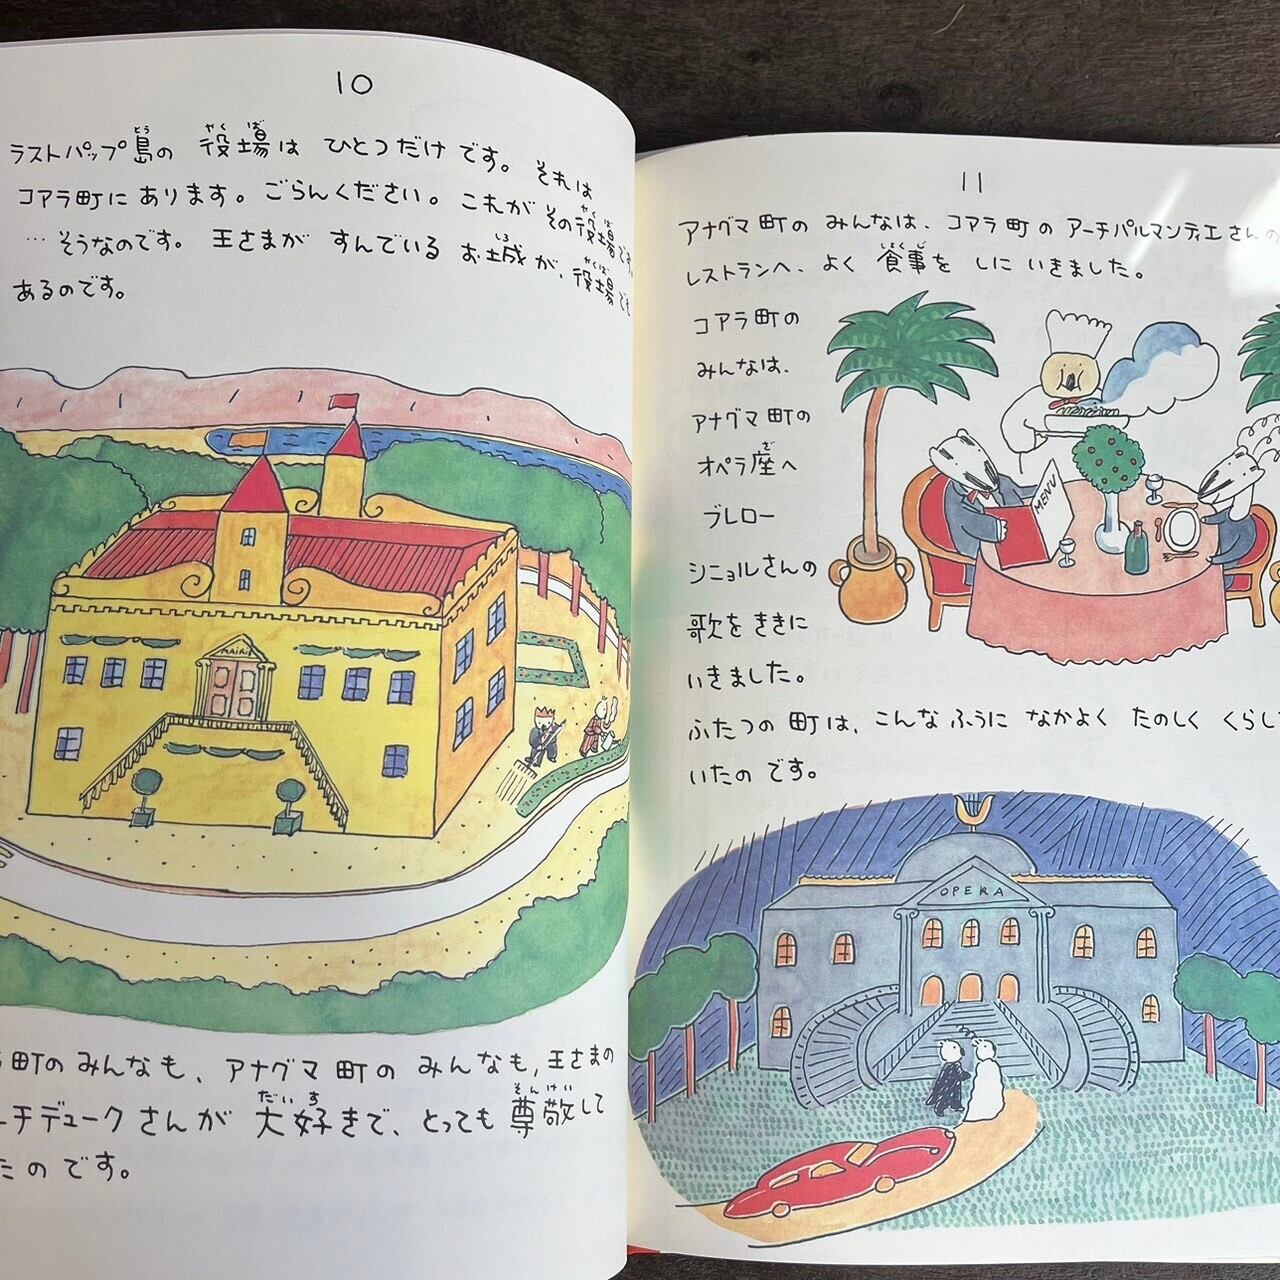 10
ラストパップ島の 役場は ひとつだけです。それは
コアラ町に あります。ごらんください。これが その役場です。
…そうなのです。王さまが すんでいる お城が、役場でも
あるのです。
MAIRIE
町の みんなも、アナグマ町の みんなも、王さまの
ーチデュークさんが 大好きで、とっても 尊敬して
たのです。
11
アナグマ町の みんなは、コアラ町の アーチパルマンティエさんの
レストランへ、よく 食事を しに いきました。
コアラ町の
みんなは、
アナグマ町の
オペラ座へ
ブレロー
シニョルさんの
歌を ききに
いきました。
ふたつの 町は、こんなふうに なかよく たのしく くらして
いたのです。
MENU
OPERA